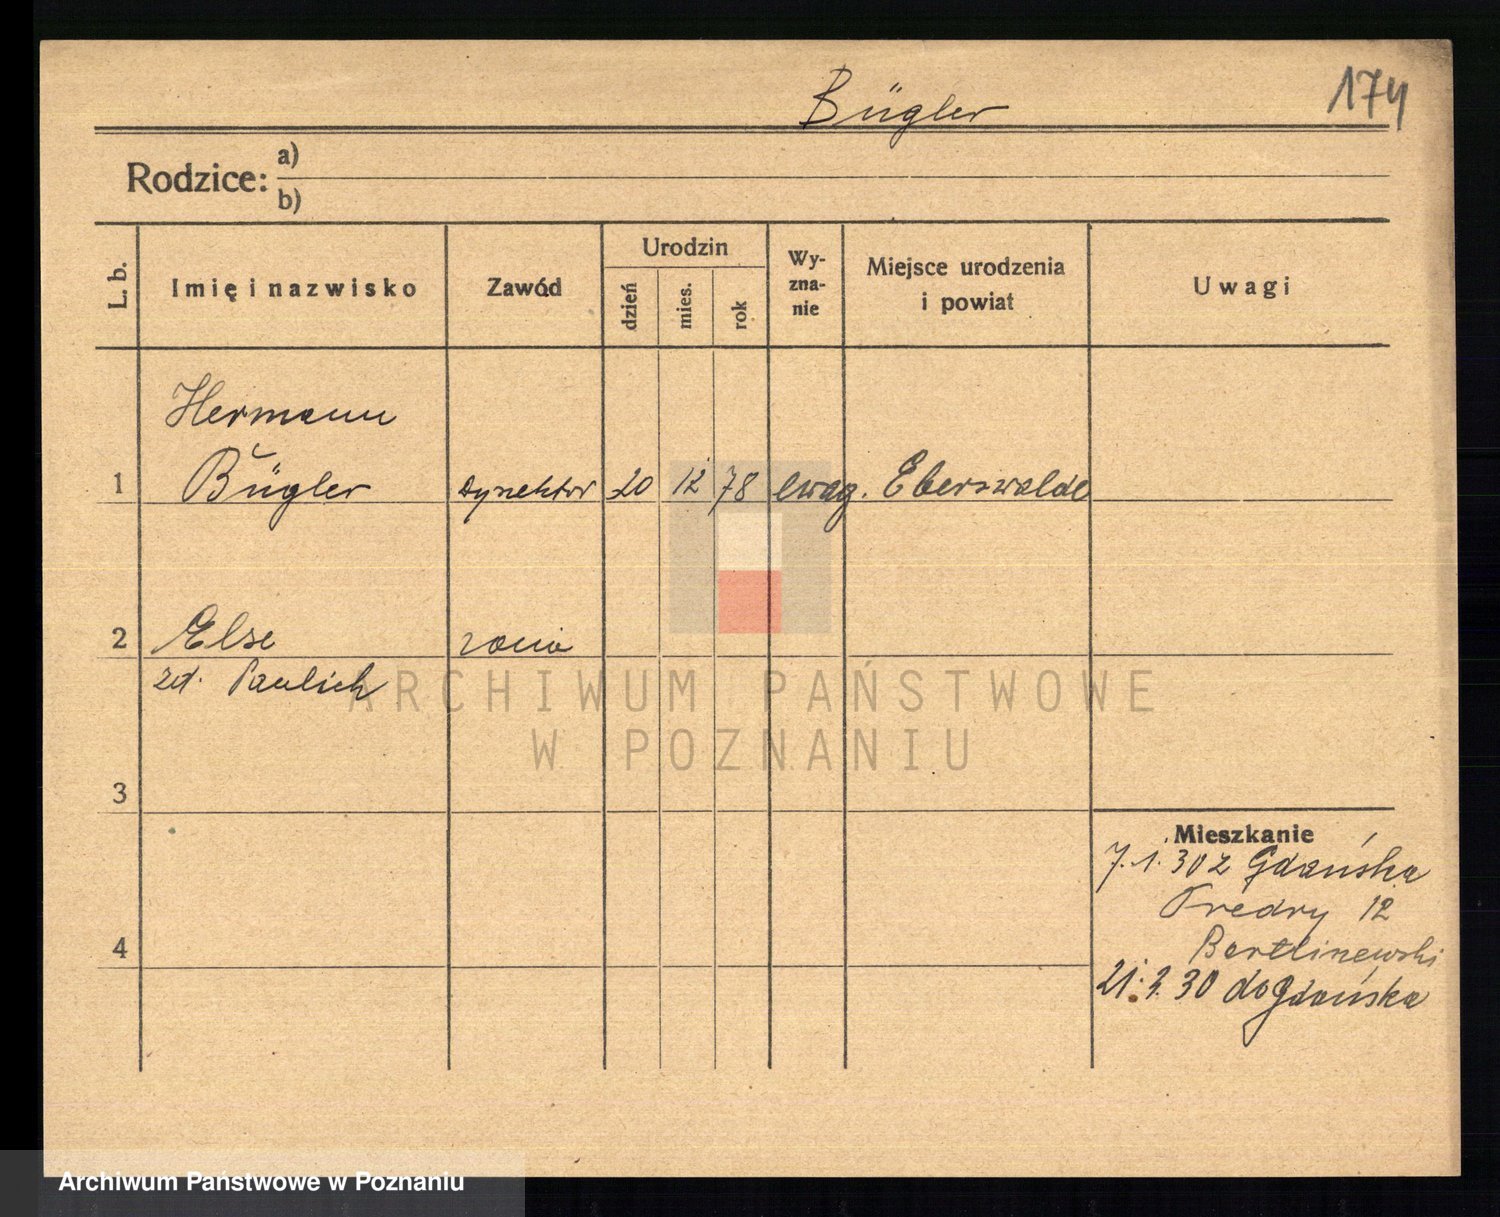 Bügler
174
Rodzice:
a)
b)
L. b.
Imię i nazwisko
Zawód
Urodzin
dzień
mies.
rok
Wy-
zna-
nie
Miejsce urodzenia
i powiat
Uwagi
Hermann
1 Bügler dyrektor 20 12 78 ewag. Eberswalde
2 Else żona
zd. Paulich
ARCHIWUM PAŃSTWOWE
W POZNANIU
3
Mieszkanie
7.1.30 z Gdańska
Fredry 12
4
21. 30 do Gdańska
Archiwum Państwowe w Poznaniu